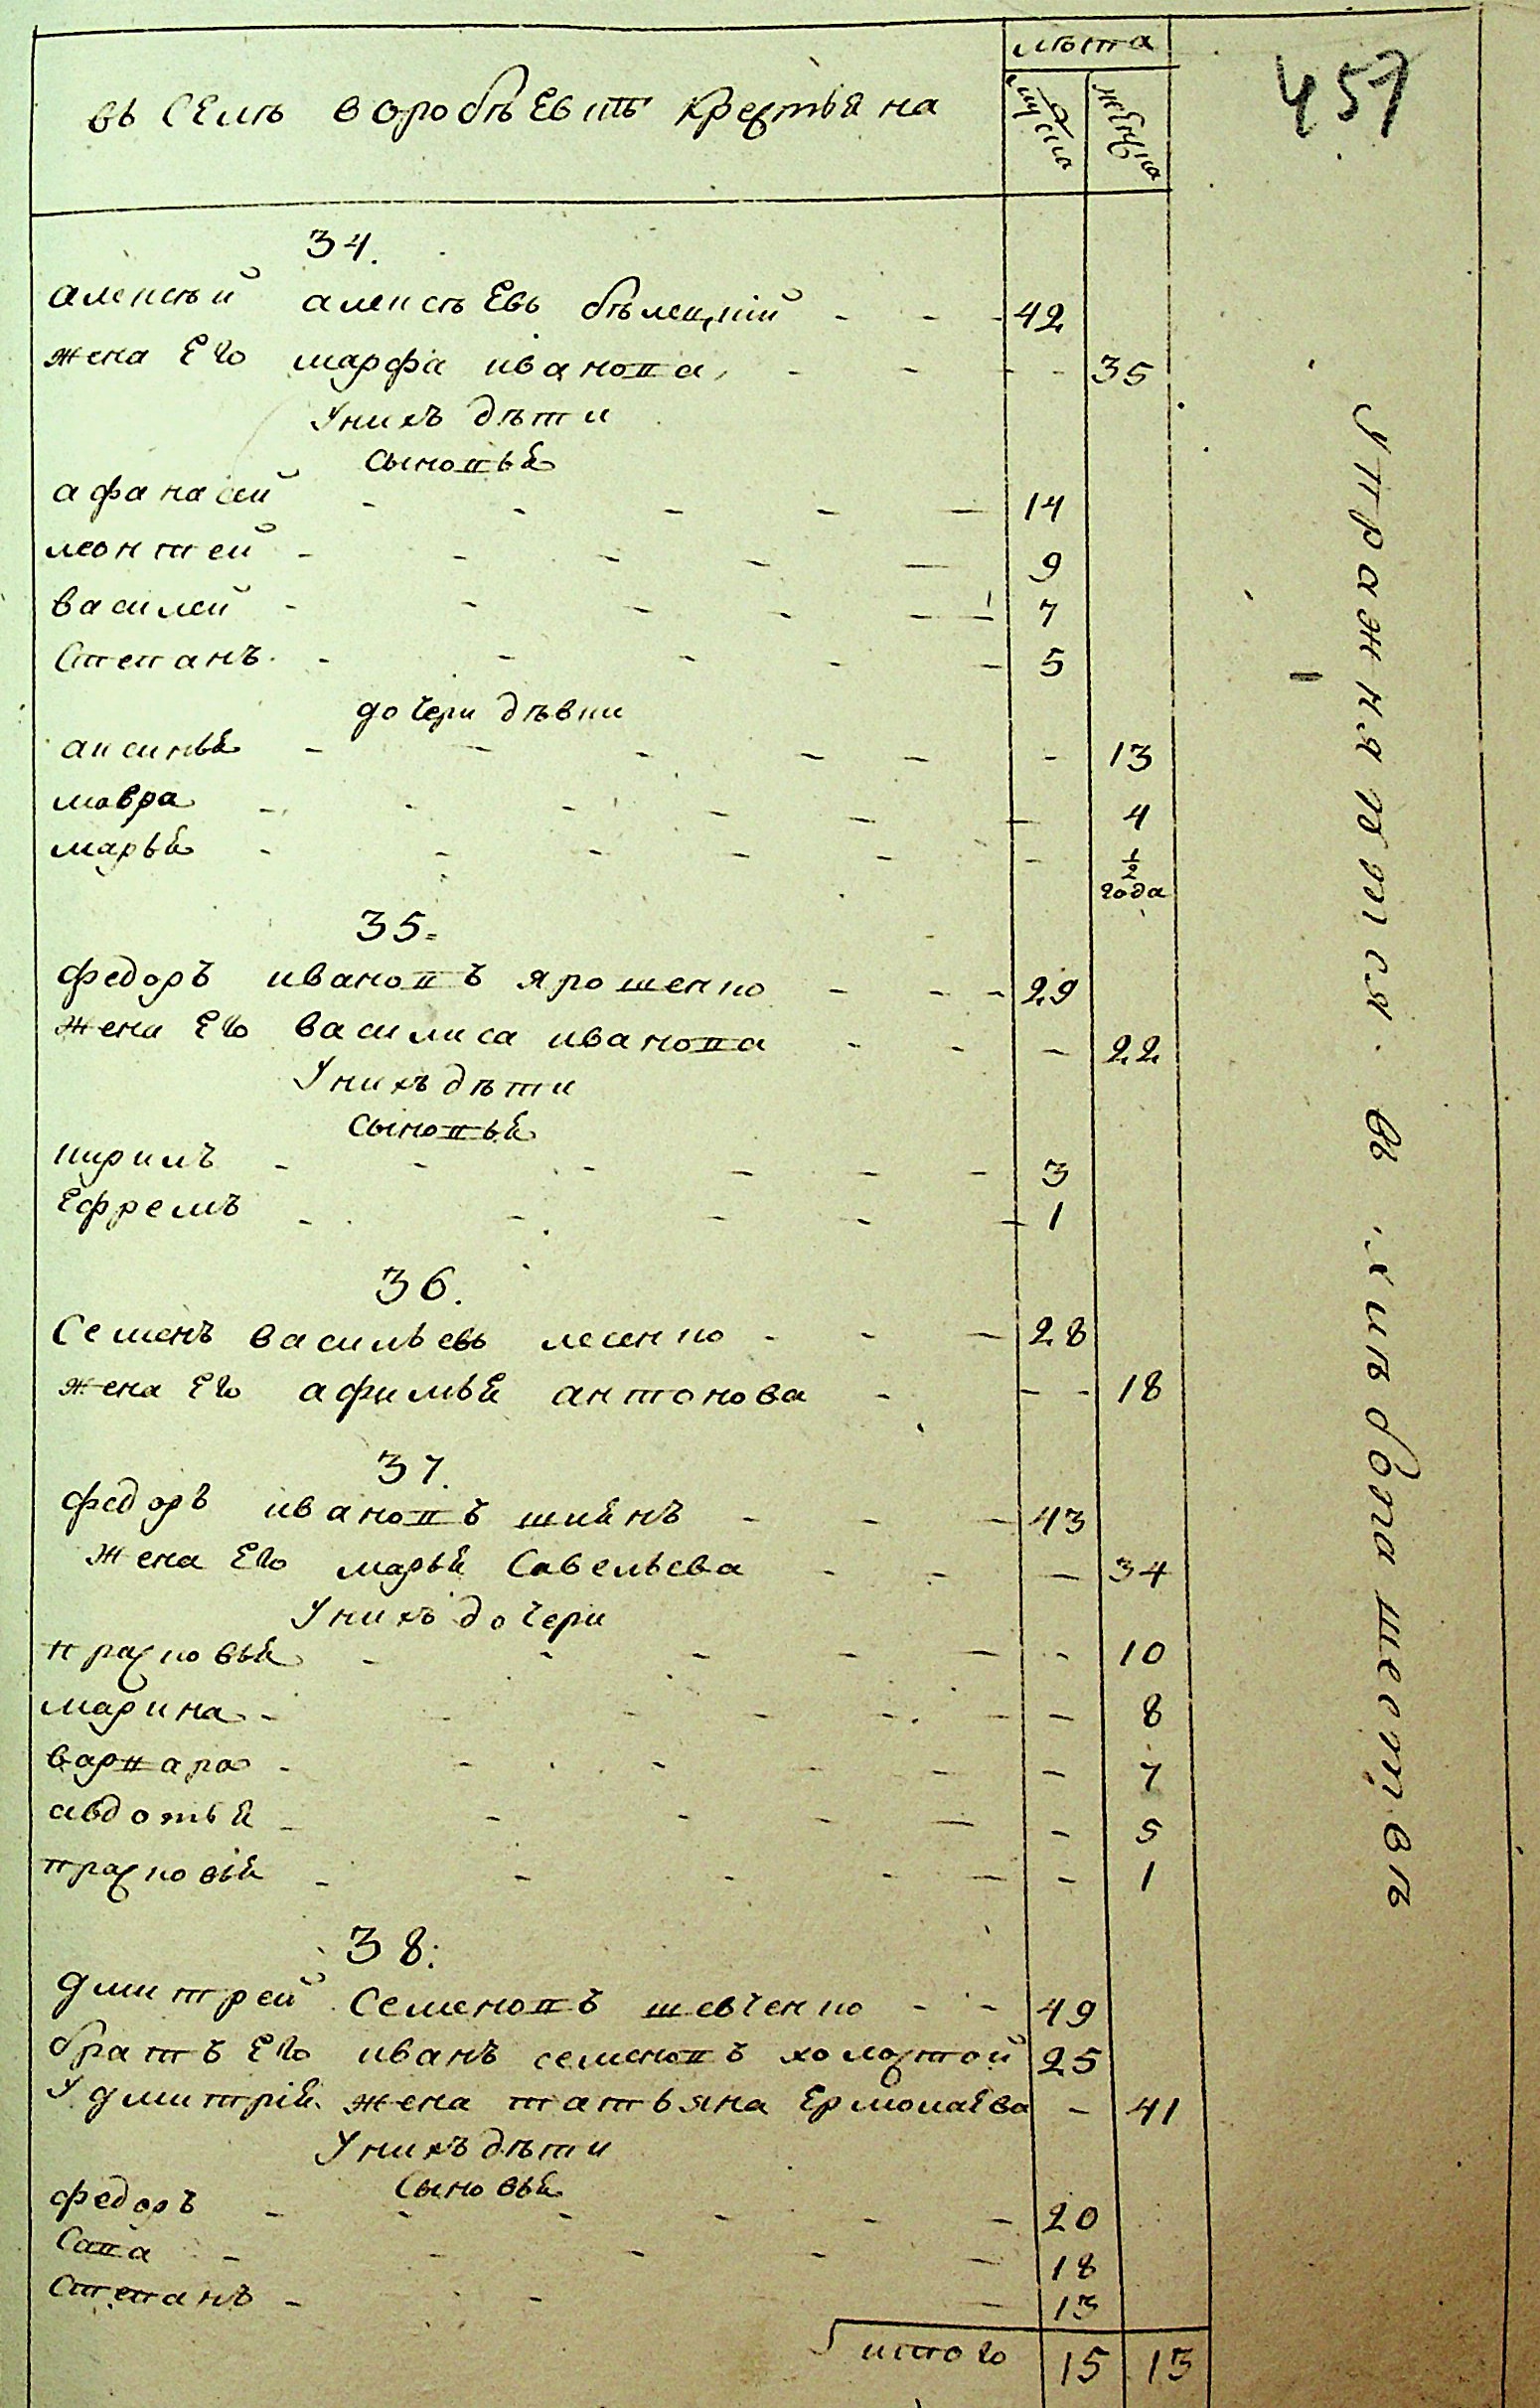 лѣта
457
въ селѣ воробьевкѣ крестьяна
мужеска
женска
34.
алексѣй алексѣевъ бѣлецкій - - - 42
жена его марфа иванова - - - - 35
у нихъ дѣти
сыновья
афанасей - - - - - 14
леонтей - - - - - 9
василей - - - - - 7
степанъ - - - - - 5
дочери дѣвки
аксинья - - - - - - 13
мавра - - - - - - 4
марья - - - - - - ½ года
35.
федоръ ивановъ ярошенко - - - 29
жена его василиса иванова - - - 22
у нихъ дѣти
сыновья
кирилъ - - - - - - 3
ефремъ - - - - - 1
36.
семенъ васильевъ лесенко - - - 28
жена его афимья антонова - - - 18
37.
федоръ ивановъ шиянъ - - - 43
жена его марья савельева - - - 34
у нихъ дочери
прасковья - - - - - - 10
марина - - - - - - - 8
варвара - - - - - - 7
авдотья - - - - - - 5
прасковья - - - - - - 1
38.
дмитрей семеновъ шевченко - - 49
братъ его иванъ семеновъ холостой 25
у дмитрія жена татьяна ермолаева - 41
у нихъ дѣти
сыновья
федоръ - - - - - - 20
сава - - - - - 18
степанъ - - - 13
итого 15 13
упражняются въ хлѣбопашествѣ